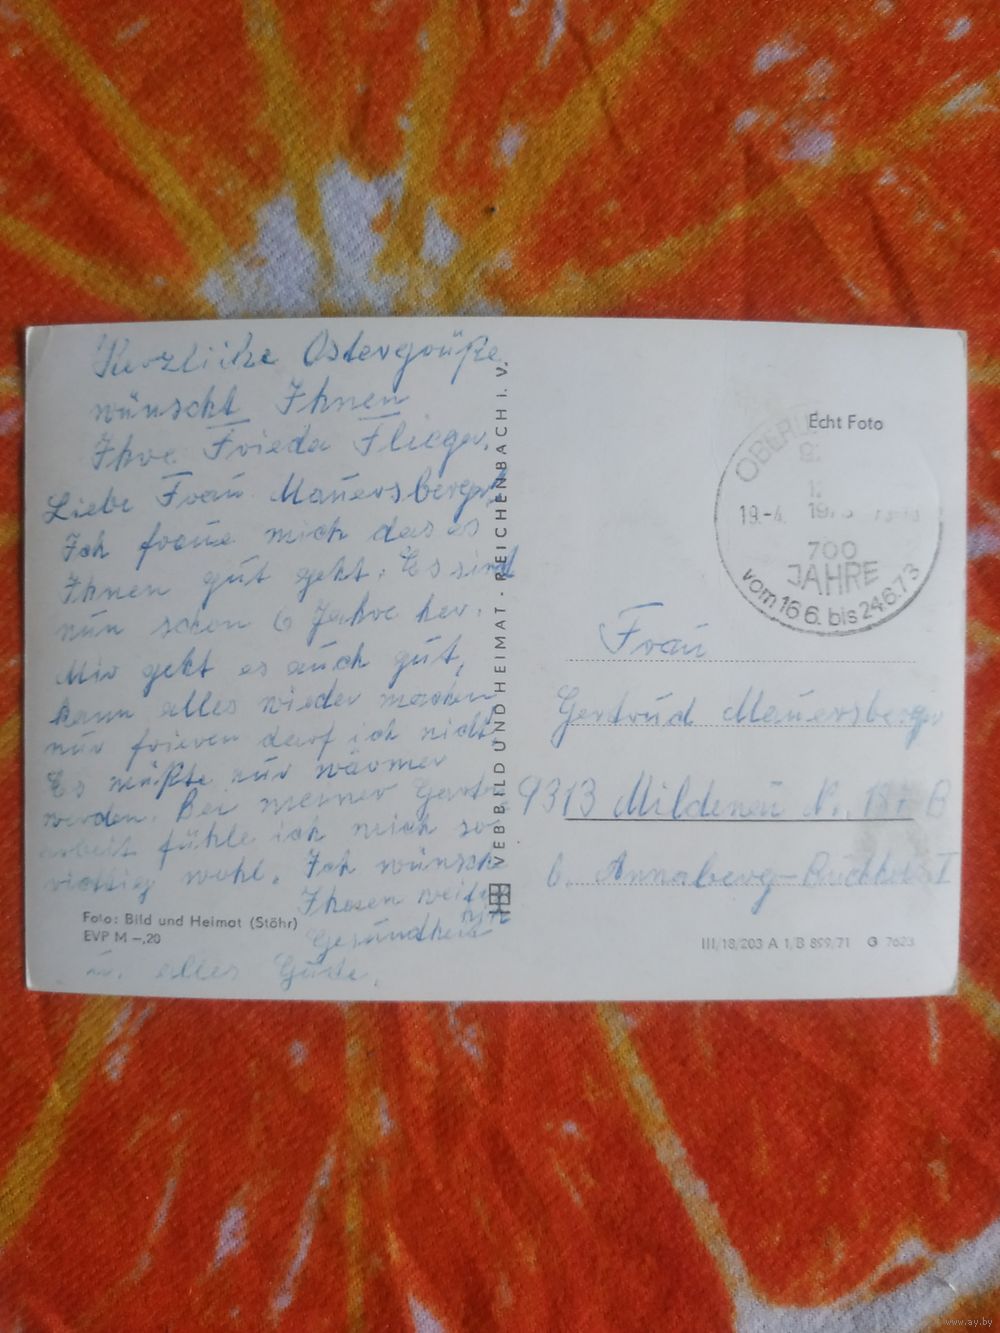 Herzliche Ostergrüße
wünscht Ihnen
Ihre Frieda Flieger.
Liebe Frau Mauersberger!
Ich freue mich das es
Ihnen gut geht. Es sind
nun schon 6 Jahre her.
Mir geht es auch gut,
kann alles wieder machen
nur frieren darf ich nicht.
Es müßte nur wärmer
werden. Bei meiner Garten
arbeit fühle ich mich so
richtig wohl. Ich wünsche
Ihnen weiterhin
Gesundheit
u. alles Gute.
Foto: Bild und Heimat (Stöhr)
EVP M -,20
VEB BILD UND HEIMAT · REICHENBACH I. V.
Echt Foto
19.-4.
700
JAHRE
vom 16 6. bis 24.6.73
Frau
Gertrud Mauersberger
9313 Mildenau Nr. 187 B
b. Annaberg-Buchholz I
III/18/203 A 1/B 899/71 G 7623
www.ay.by